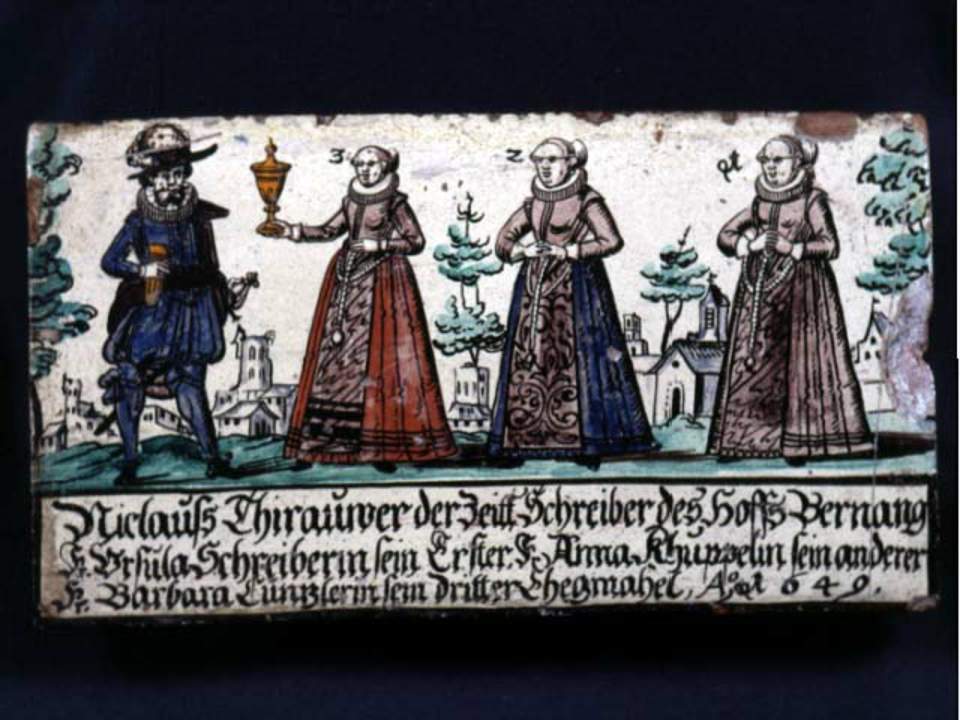 3 2 1
Niclauss Thirauwer der Zeitt Schreiber des Hoffs Bernang
Fr. Vrsula Schreiberin sein Erster. Fr. Anna Khuppelin sein anderer
Fr. Barbara Cuntzlerin sein dritter Ehegmahel, Aō. 1649.